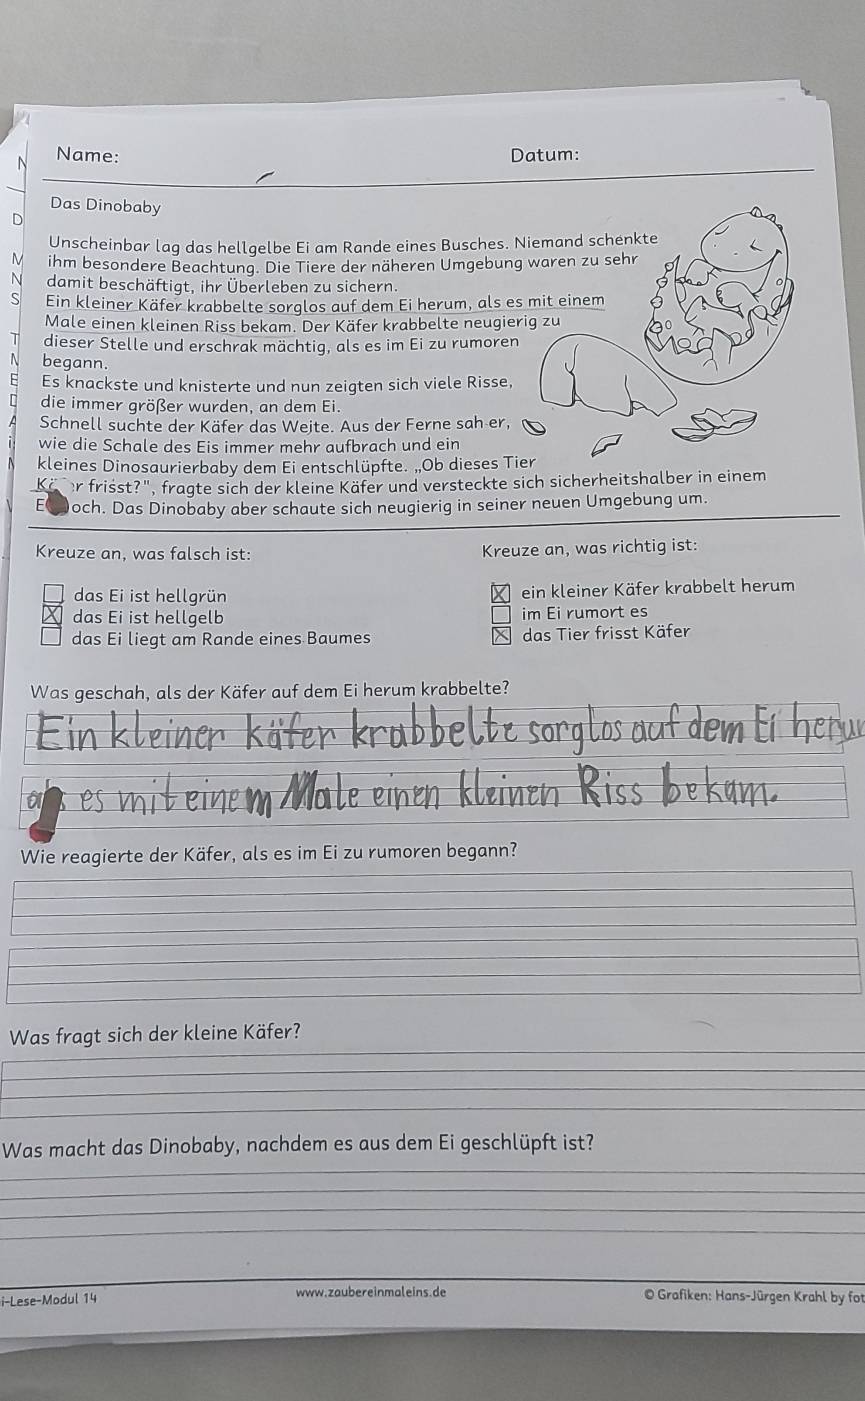 Name: Datum:
Das Dinobaby
Unscheinbar lag das hellgelbe Ei am Rande eines Busches. Niemand schenkte
ihm besondere Beachtung. Die Tiere der näheren Umgebung waren zu sehr
damit beschäftigt, ihr Überleben zu sichern.
Ein kleiner Käfer krabbelte sorglos auf dem Ei herum, als es mit einem
Male einen kleinen Riss bekam. Der Käfer krabbelte neugierig zu
dieser Stelle und erschrak mächtig, als es im Ei zu rumoren
begann.
Es knackste und knisterte und nun zeigten sich viele Risse,
die immer größer wurden, an dem Ei.
Schnell suchte der Käfer das Weite. Aus der Ferne sah er,
wie die Schale des Eis immer mehr aufbrach und ein
kleines Dinosaurierbaby dem Ei entschlüpfte. „Ob dieses Tier
frisst?", fragte sich der kleine Käfer und versteckte sich sicherheitshalber in einem
och. Das Dinobaby aber schaute sich neugierig in seiner neuen Umgebung um.
Kreuze an, was falsch ist: Kreuze an, was richtig ist:
das Ei ist hellgrün ein kleiner Käfer krabbelt herum
das Ei ist hellgelb im Ei rumort es
das Ei liegt am Rande eines Baumes das Tier frisst Käfer
Was geschah, als der Käfer auf dem Ei herum krabbelte?
Ein kleiner käfer krabbelte sorglos auf dem Ei herum
es mit einem Male einen kleinen Riss bekam.
Wie reagierte der Käfer, als es im Ei zu rumoren begann?
Was fragt sich der kleine Käfer?
Was macht das Dinobaby, nachdem es aus dem Ei geschlüpft ist?
i-Lese-Modul 14 www.zaubereinmaleins.de © Grafiken: Hans-Jürgen Krahl by fot